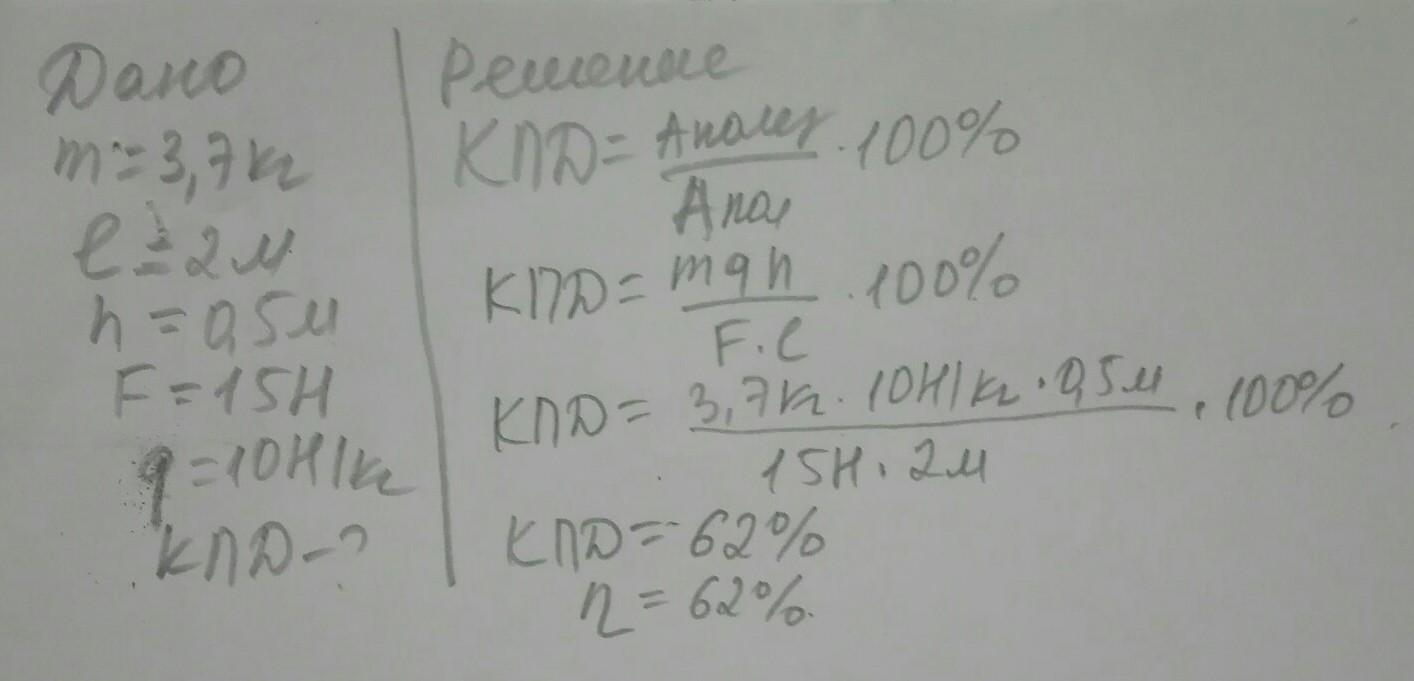 Дано
m = 3,7 кг
l = 2 м
h = 0,5 м
F = 15 Н
g = 10 Н/кг
КПД - ?
Решение
КПД = Аполез / Апол · 100%
КПД = mgh / F·l · 100%
КПД = 3,7 кг · 10 Н/кг · 0,5 м / 15 Н · 2 м · 100%
КПД = 62%
η = 62%.